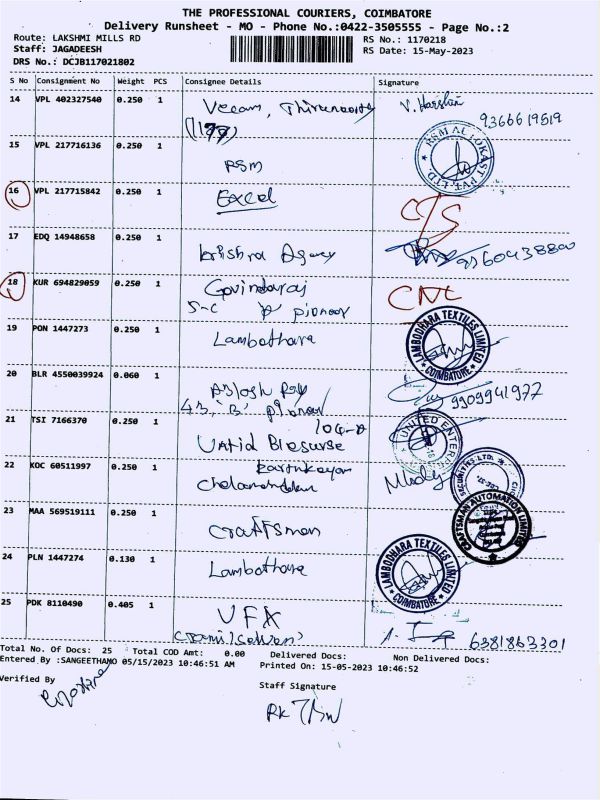 THE PROFESSIONAL COURIERS, COIMBATORE
Delivery Runsheet - MO - Phone No.:0422-3505555 - Page No.:2
Route: LAKSHMI MILLS RD RS No.: 1170218
Staff: JAGADEESH RS Date: 15-May-2023
DRS No.: DCJB117021802
S No Consignment No Weight PCS Consignee Details Signature
14 VPL 402327540 0.250 1 Veeam, V. Harshni 9366619519
15 VPL 217716136 0.250 1 RSM
16 VPL 217715842 0.250 1 Excel C/S
17 EDQ 14948658 0.250 1 krishna Agency 9560438800
18 KUR 694829059 0.250 1 Govindaraj CNL
5-C pioneer
19 PON 1447273 0.250 1 Lambothara
LAMBODHARA TEXTILES LIMITED COIMBATORE
20 BLR 4550039924 0.060 1 9909941977
43, 'B' pioneer
21 TSI 7166370 0.250 1
UNITED ENTERP
22 KOC 60511997 0.250 1 Kartikeyan
SECURITIES LTD.
23 MAA 569519111 0.250 1 Craftsman
CRAFTSMAN AUTOMATION LIMITED
24 PLN 1447274 0.130 1 Lambothara
LAMBODHARA TEXTILES LIMITED COIMBATORE
25 PDK 8110490 0.405 1 VFX 6381863301
Total No. Of Docs: 25 Total COD Amt: 0.00 Delivered Docs: Non Delivered Docs:
Entered By :SANGEETHAMO 05/15/2023 10:46:51 AM Printed On: 15-05-2023 10:46:52
Verified By Staff Signature